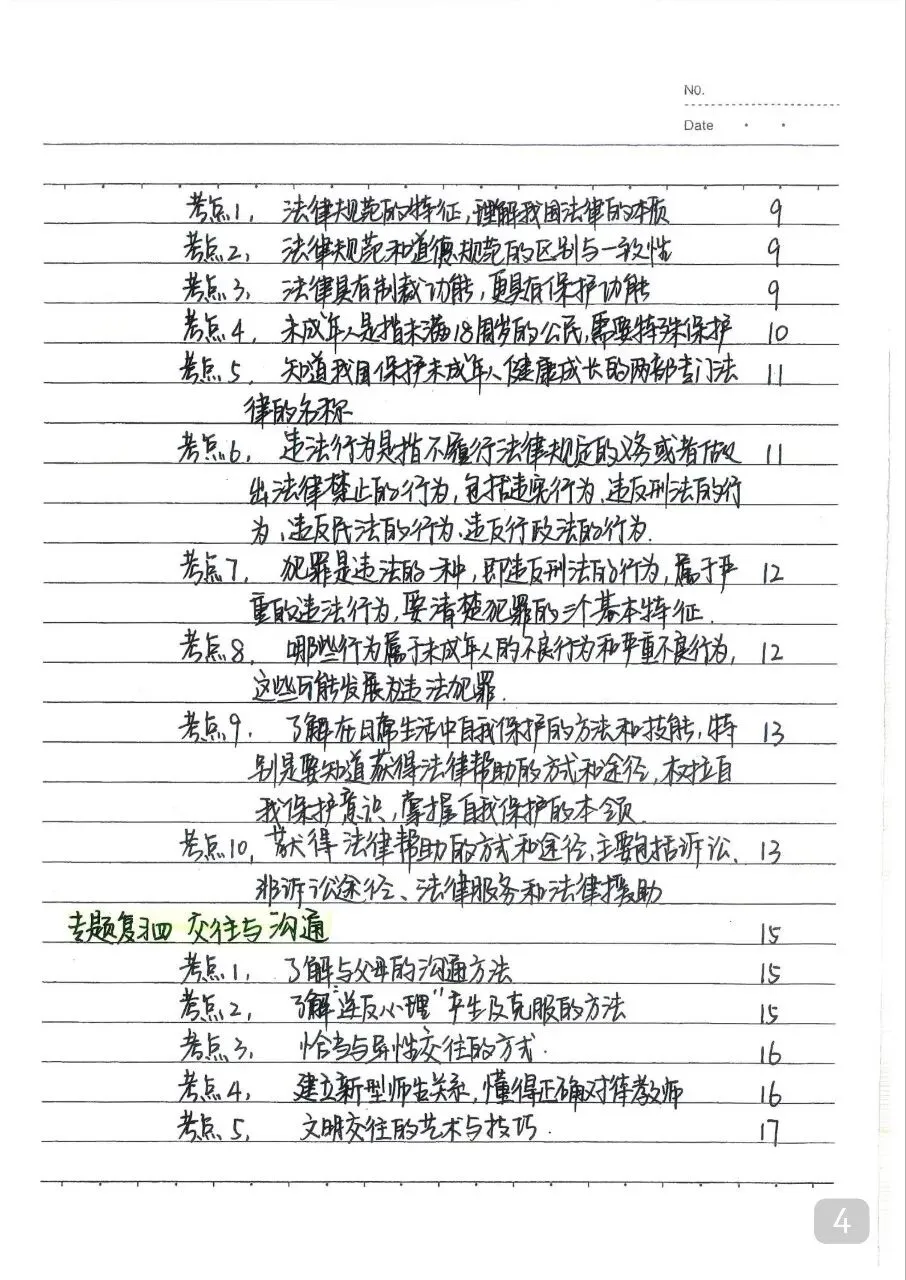 NO.
Date
考点1, 法律规范的特征,理解我国法律的本质 9
考点2, 法律规范和道德规范的区别与一致性 9
考点3, 法律具有制裁功能,更具有保护功能 9
考点4, 未成年人是指未满18周岁的公民,需要特殊保护 10
考点5, 知道我国保护未成年人健康成长的两部专门法 11
律的名称
考点6, 违法行为是指不履行法律规定的义务或者做 11
出法律禁止的行为,包括违宪行为、违反刑法的行
为、违反民法的行为、违反行政法的行为.
考点7, 犯罪是违法的一种,即违反刑法的行为,属于严 12
重的违法行为,要清楚犯罪的三个基本特征.
考点8, 哪些行为属于未成年人的不良行为和严重不良行为, 12
这些可能发展为违法犯罪.
考点9. 了解在日常生活中自我保护的方法和技能,特 13
别是要知道获得法律帮助的方式和途径,树立自
我保护意识,掌握自我保护的本领.
考点10, 获得法律帮助的方式和途径,主要包括诉讼、 13
非诉讼途径、法律服务和法律援助
专题复习四 交往与沟通 15
考点1, 了解与父母的沟通方法 15
考点2, 了解"逆反心理"产生及克服的方法 15
考点3, 恰当与异性交往的方式. 16
考点4, 建立新型师生关系,懂得正确对待教师 16
考点5, 文明交往的艺术与技巧. 17
4